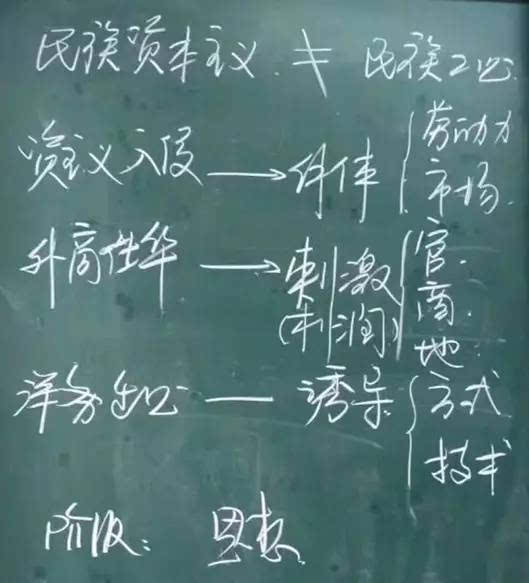 民族资本主义 ≠ 民族工业
资主义入侵 → 解体 { 劳动力
市场
外商在华 → 刺激 { 官.
(利润) 商.
地.
洋务企业 — 诱导 { 方式
技术
阶级: 思想